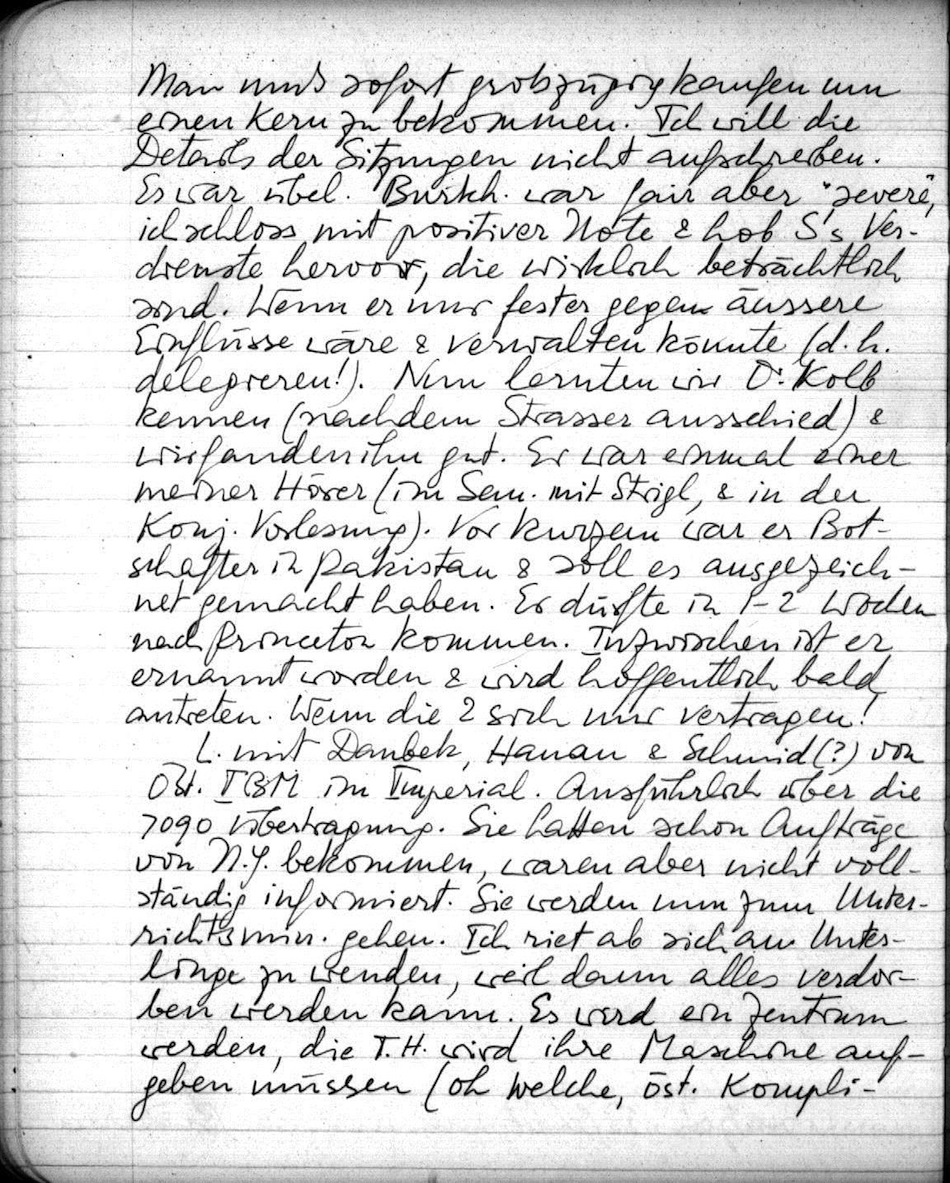 Man muß sofort großzügig kaufen um
einen Kern zu bekommen. Ich will die
Details der Sitzungen nicht aufschreiben.
Es war übel. Burkh. war fair aber "severe",
ich schloss mit positiver Note & hob S's Ver-
dienste hervor, die wirklich beträchtlich
sind. Wenn er nur fester gegen äussere
Einflüsse wäre & verwalten könnte (d.h.
delegieren!). Nun lernten wir Dr. Kolb
kennen (nachdem Strasser ausschied) &
wir fanden ihn gut. Er war einmal einer
meiner Hörer (im Sem. mit Strigl, & in der
Konj. Vorlesung). Vor kurzem war er Bot-
schafter in Pakistan & soll es ausgezeich-
net gemacht haben. Er dürfte in 1-2 Wochen
nach Princeton kommen. Inzwischen ist er
ernannt worden & wird hoffentlich bald
antreten. Wenn die 2 sich nur vertragen!
L. mit Danbek, Hanan & Schmid(?) von
Öst. IBM im Imperial. Ausführlich über die
7090 Übertragung. Sie hatten schon Aufträge
von N.Y. bekommen, waren aber nicht voll-
ständig informiert. Sie werden nun zum Unter-
richtsmin. gehen. Ich riet ab sich an Unter-
linge zu wenden, weil dann alles verdor-
ben werden kann. Es wird ein Zentrum
werden, die T.H. wird ihre Maschine auf-
geben müssen (oh welche, öst. Kompli-